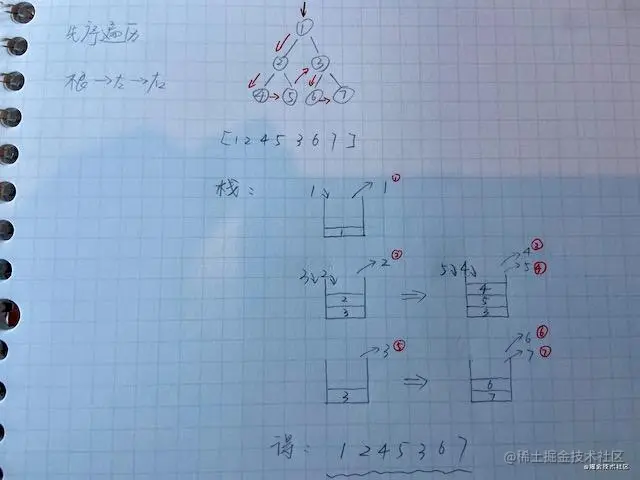 先序遍历
1
2 3
4 5 6 7
根→左→右
[1 2 4 5 3 6 7]
栈：
1 1 ①
1
3 2 2 ②
2
3
⇒
5 4 4 ③
5 ④
4
5
3
3 ⑤
3
⇒
6 ⑥
7 ⑦
6
7
得： 1 2 4 5 3 6 7
@稀土掘金技术社区
@掘金技术社区